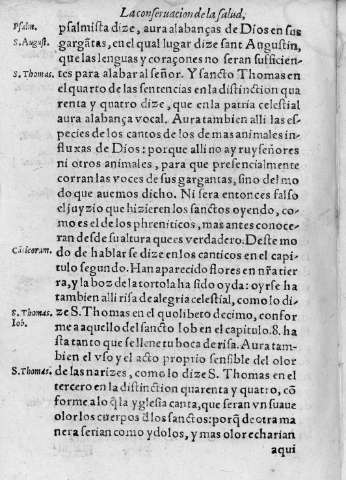 La conseruacion de la salud,
Psalm. psalmista dize, aura alabanças de Dios en sus
S. August. gargãtas, en el qual lugar dize sant Augustin,
que las lenguas y coraçones no seran sufficien-
S. Thomas. tes para alabar al señor. Y sancto Thomas en
el quarto de las sentencias en la distinction qua
renta y quatro dize, que en la patria celestial
aura alabança vocal. Aura tambien alli las es-
pecies de los cantos de los de mas animales in-
fluxas de Dios: porque alli no ay ruyseñores
ni otros animales, para que presencialmente
corran las voces de sus gargantas, sino del mo
do que auemos dicho. Ni sera entonces falso
el juyzio que hizieren los sanctos oyendo, co-
mo es el de los phreniticos, mas antes conoce-
ran desde su altura que es verdadero. Deste mo
Cãticorum. do de hablar se dize en los canticos en el capi-
tulo segundo. Han aparecido flores en nr̃a tier
ra, y la boz de la tortola ha sido oyda: oyrse ha
tambien alli risa de alegria celestial, como lo di-
S. Thomas. ze S. Thomas en el quolibeto decimo, confor
Iob. me a aquello del sancto Iob en el capitulo. 8. ha
sta tanto que se llene tu boca de risa. Aura tam-
bien el vso y el acto proprio sensible del olor
S. Thomas. de las narizes, como lo dize S. Thomas en el
tercero en la distinction quarenta y quatro, cõ
forme a lo q̃ la yglesia canta, que seran vn suaue
olor los cuerpos d̃ los sanctos: porq̃ de otra ma
nera serian como ydolos, y mas olor echarian
aqui